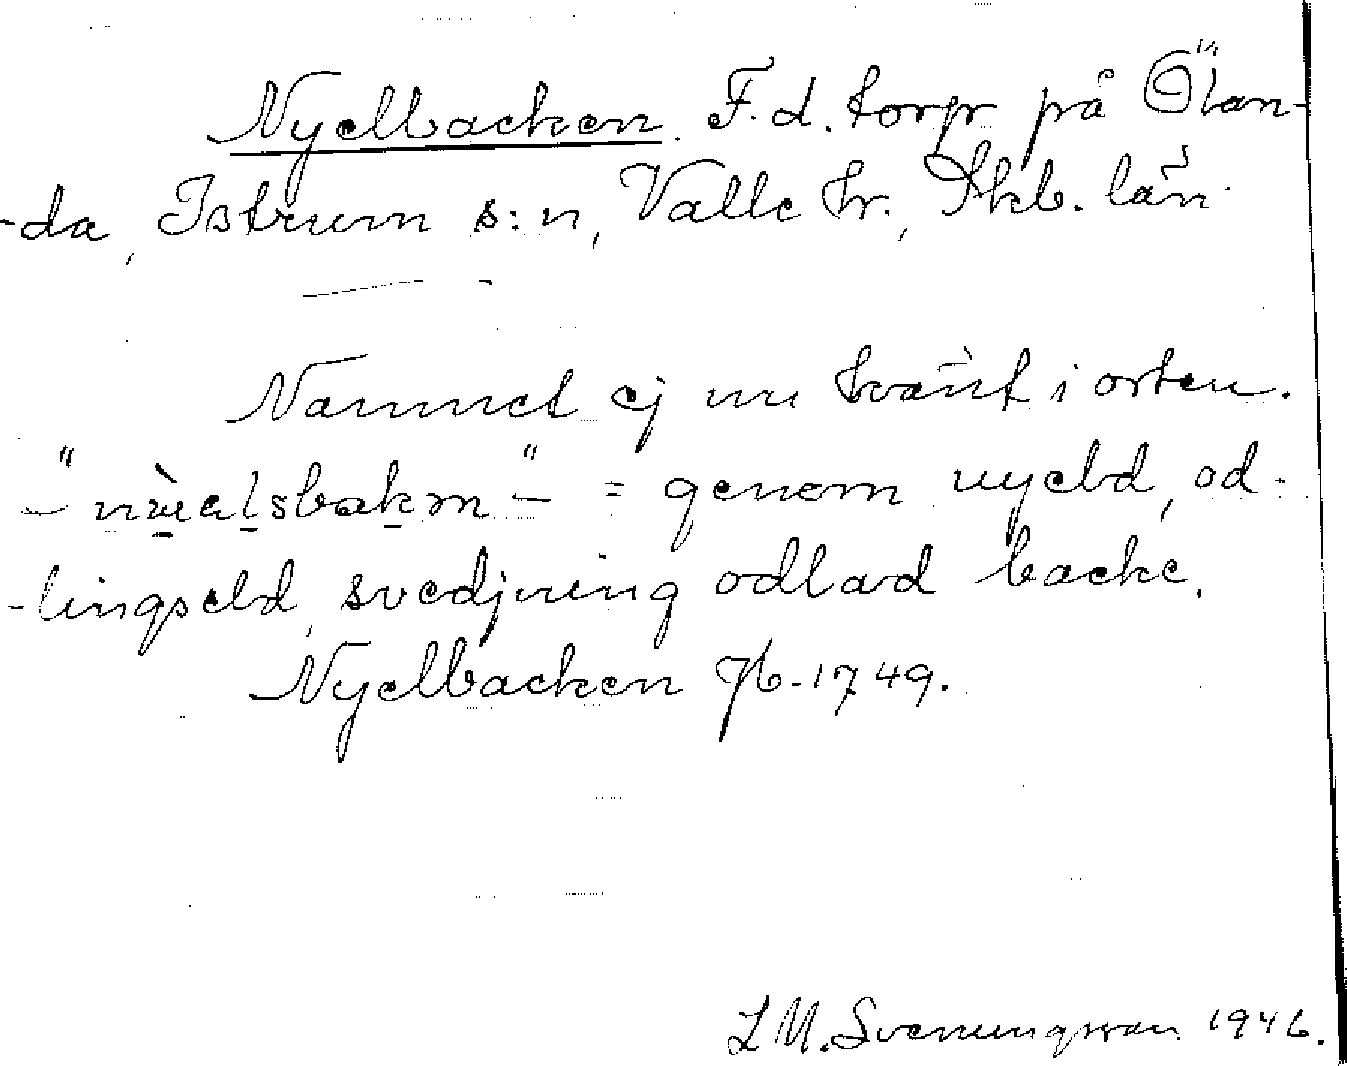 Nyelbacken. F. d. torp på Ölan-
-da, Istrum s:n, Valle hr., Skb. län.
Namnet ej nu känt i orten.
= genom nyeld, od-
-lingseld, svedjning odlad backe.
Nyelbacken Jb. 1749.
L M. Svenungsson 1946.